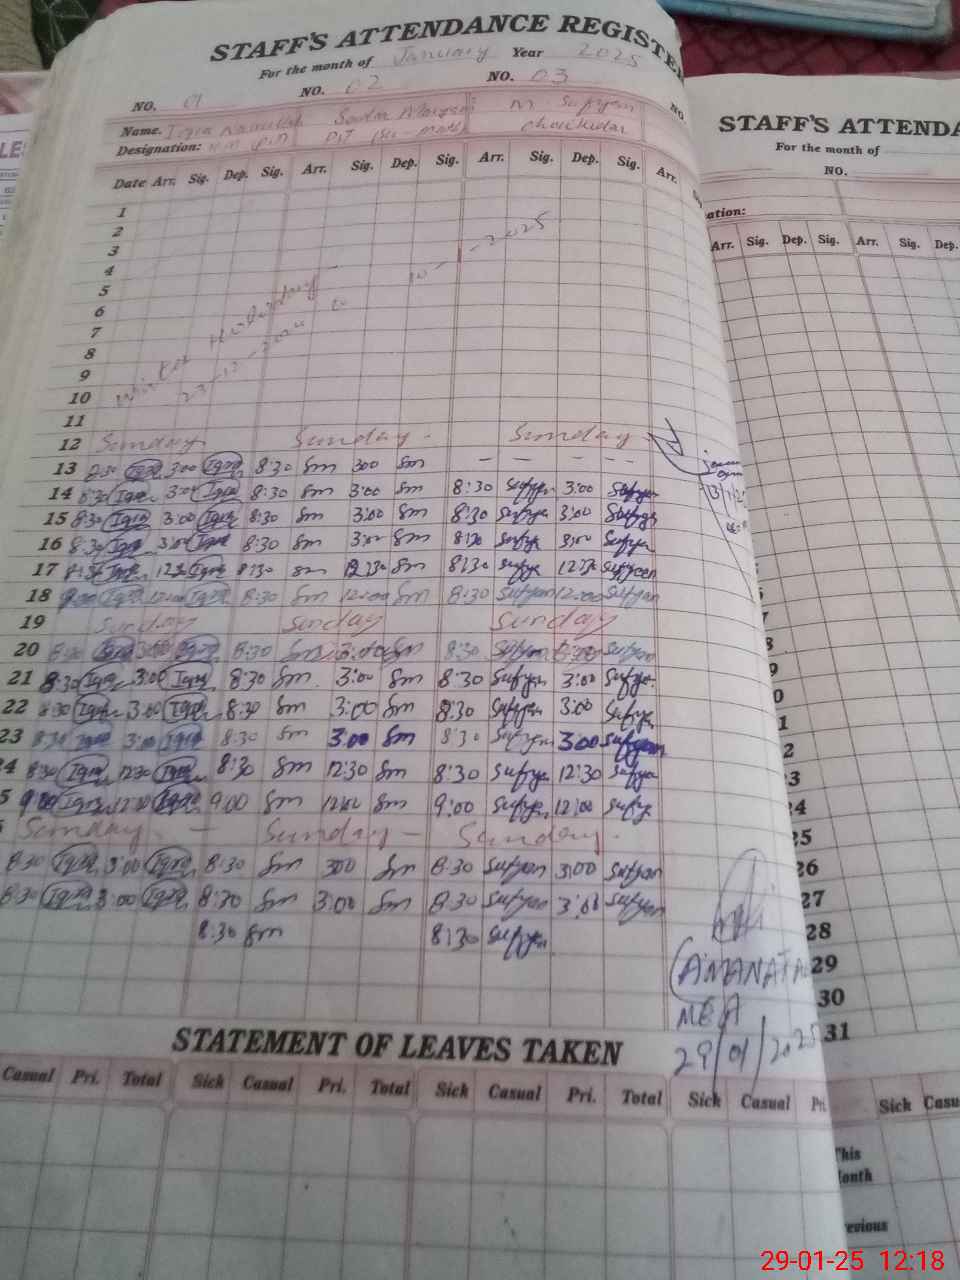 STAFF'S ATTENDANCE REGISTE
For the month of January Year 2025
NO. 01 NO. 02 NO. 03 NO
Name. Iqra M. Sufyan
Designation: Chowkidar
Date Arr. Sig. Dep. Sig. Arr. Sig. Dep. Sig. Arr. Sig. Dep. Sig. Arr.
1
2
3
4
5
6
7
8
9
10
11
Winter Holiday
23-12-2024 to 10-1-2025
12 Sunday Sunday - Sunday
13 8:30 Iqra 3:00 Iqra 8:30 Sm 300 Sm - - - -
14 8:30 Iqra 3:00 Iqra 8:30 Sm 3:00 Sm 8:30 Sufyan 3:00 Sufyan
15 8:30 Iqra 3:00 Iqra 8:30 Sm 3:00 Sm 8:30 Sufya 3:00 Sufyan
16 8:30 Iqra 3:00 Iqra 8:30 Sm 3:00 Sm 8:30 Sufya 3:00 Sufya
17 8:30 Iqra 12:30 Iqra 8:30 Sm 12:30 Sm 8:30 Sufya 12:30 Sufyan
18 9:00 Iqra 12:00 Iqra 8:30 Sm 12:00 Sm 8:30 Sufyan 12:00 Sufyan
19 Sunday Sunday Sunday
20 8:30 Iqra 3:00 Iqra 8:30 Sm 3:00 Sm 8:30 Sufyan 3:00 Sufyan
21 8:30 Iqra 3:00 Iqra 8:30 Sm 3:00 Sm 8:30 Sufyan 3:00 Sufya
22 8:30 Iqra 3:00 Iqra 8:30 Sm 3:00 Sm 8:30 Sufyan 3:00 Sufya
23 8:30 Iqra 3:00 Iqra 8:30 Sm 3:00 Sm 8:30 Sufyan 3:00 Sufyan
4 8:30 Iqra 12:30 Iqra 8:30 Sm 12:30 Sm 8:30 Sufya 12:30 Sufya
5 9:00 Iqra 12:00 Iqra 9:00 Sm 12:00 Sm 9:00 Sufya 12:00 Sufy
Sunday - Sunday - Sunday
8:30 Iqra 3:00 Iqra 8:30 Sm 300 Sm 8:30 Sufyan 3:00 Sufyan
8:30 Iqra 3:00 Iqra 8:30 Sm 3:00 Sm 8:30 Sufyan 3:00 Sufyan
8:30 Sm 8:30 Sufya
AMANAT
MEA
29/01/2025
STATEMENT OF LEAVES TAKEN
Casual Pri. Total Sick Casual Pri. Total Sick Casual Pri. Total Sick Casual Pri.
STAFF'S ATTENDA
For the month of
NO.
ation:
Arr. Sig. Dep. Sig. Arr. Sig. Dep.
8
9
0
1
2
3
24
25
26
27
28
29
30
31
Sick Casu
This
Month
evious
29-01-25 12:18